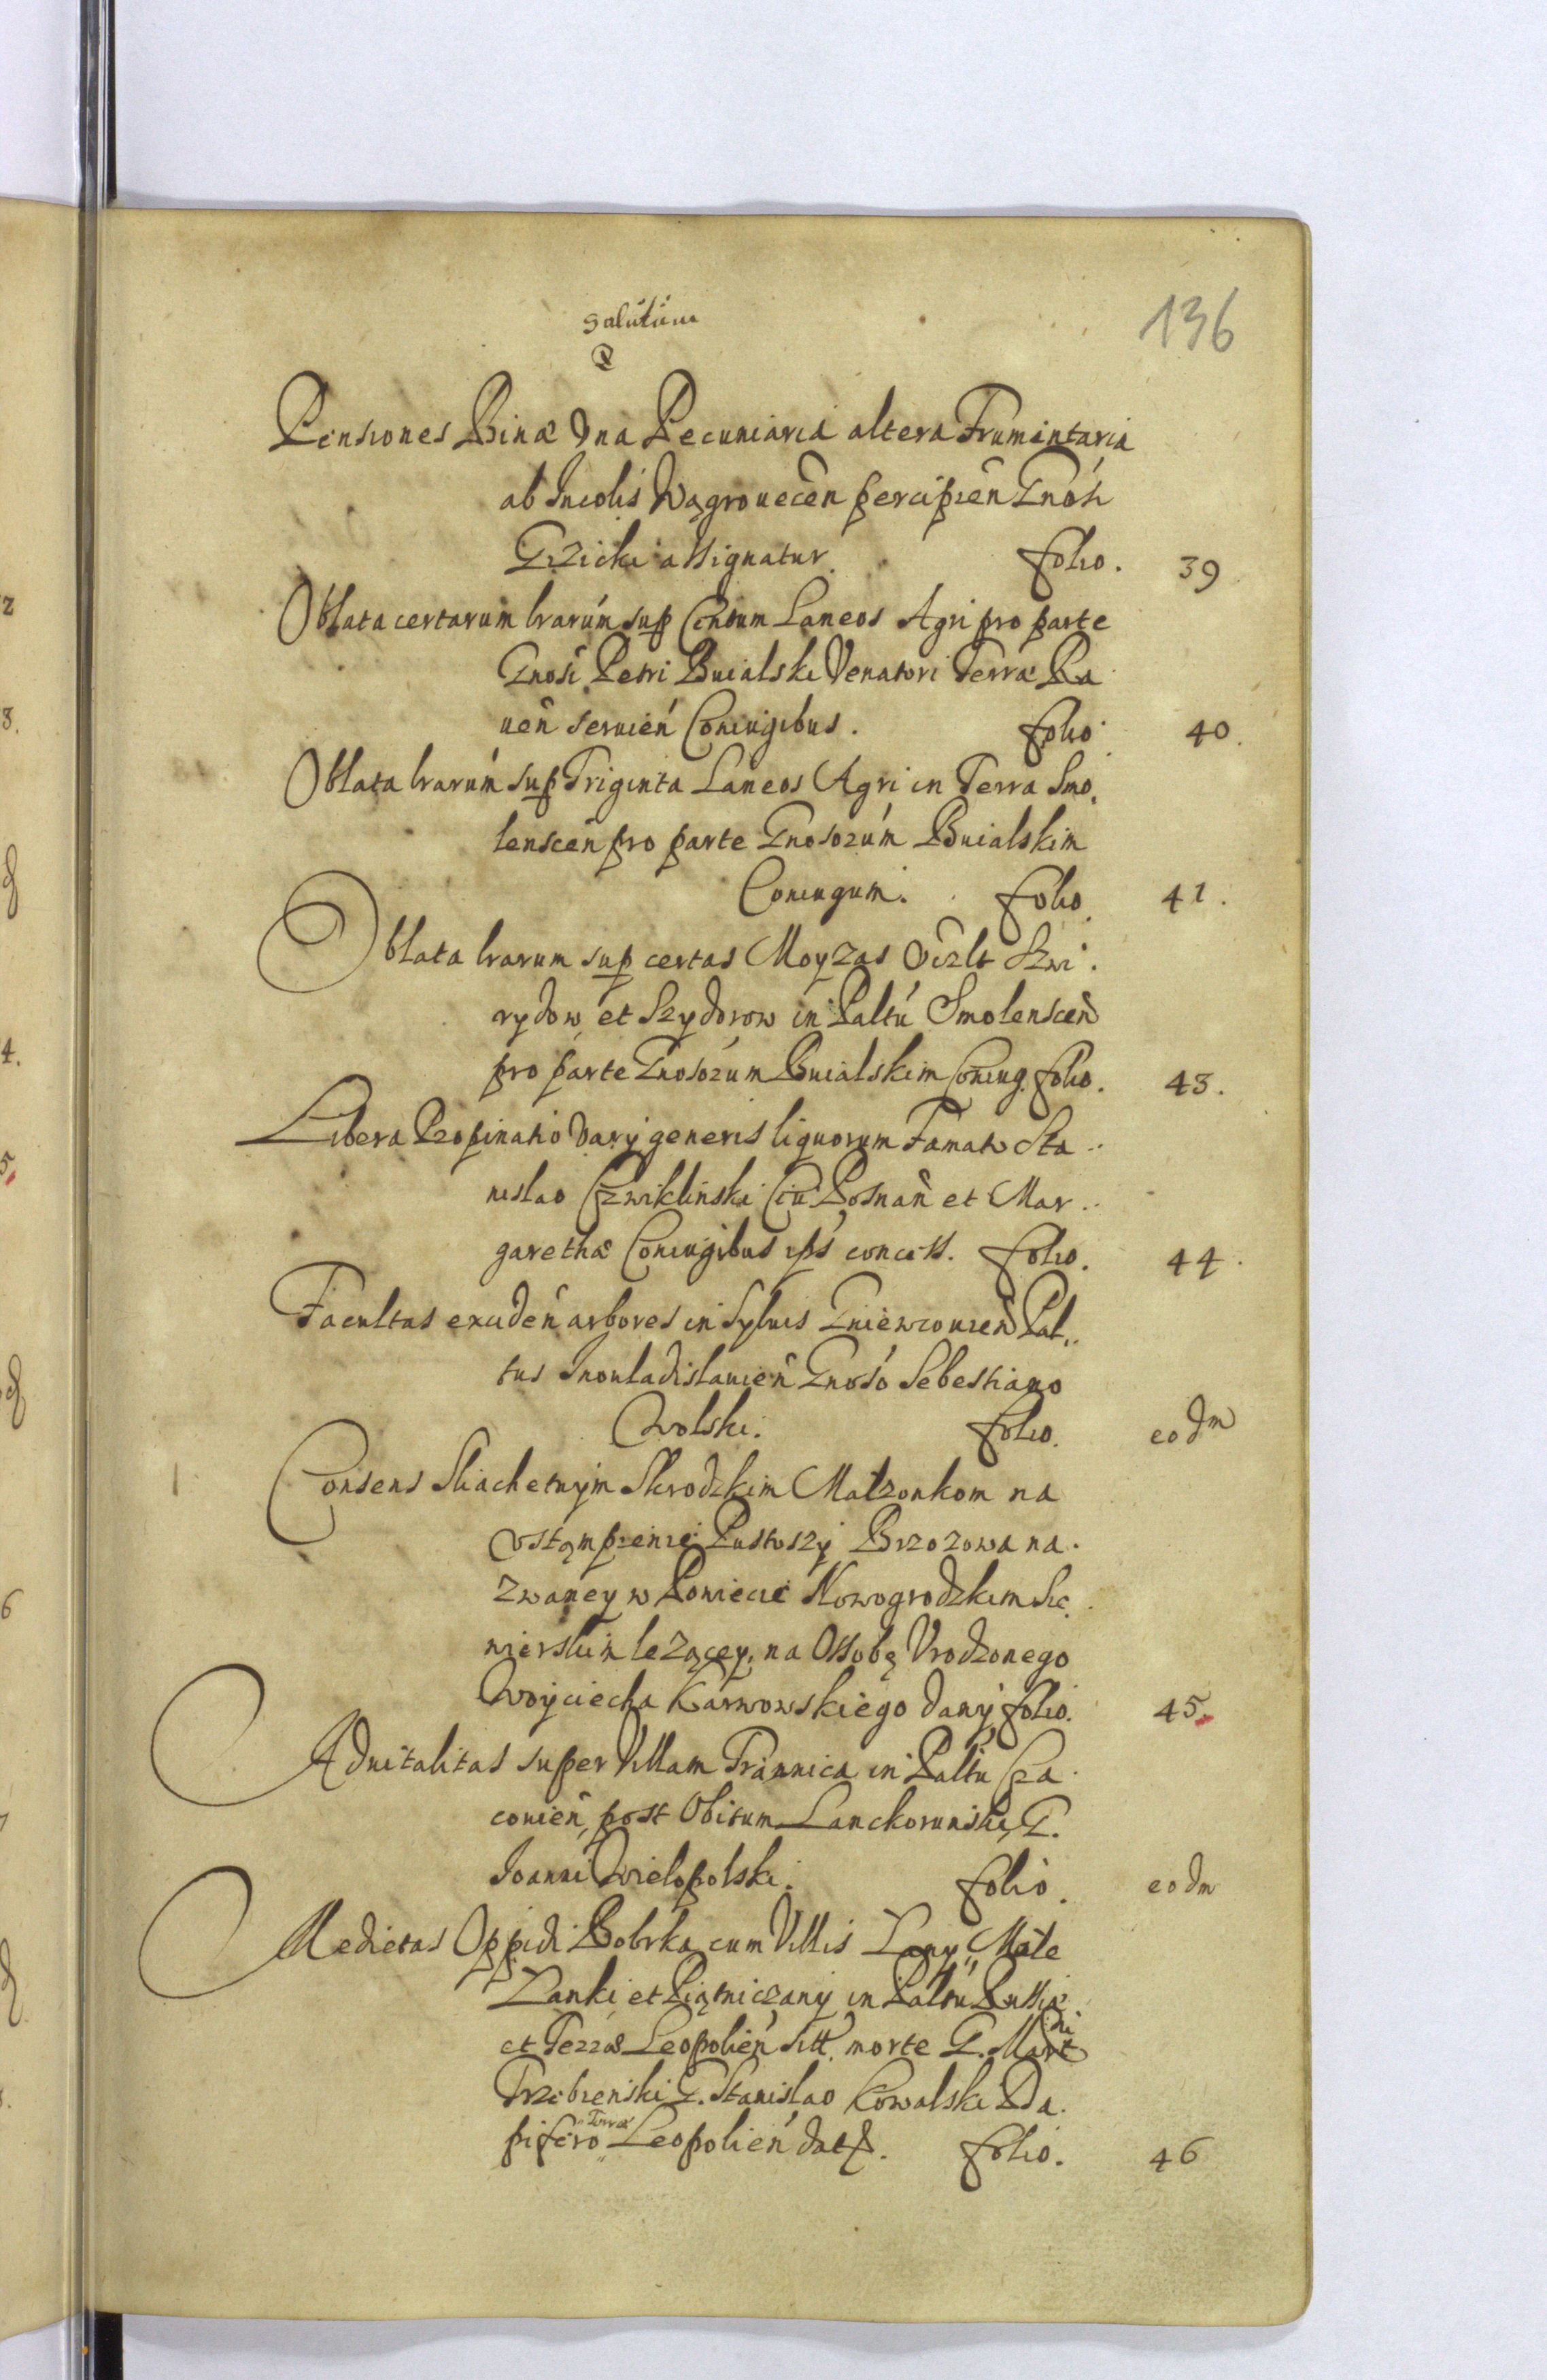 136
salutem
Pensiones Binæ Una Pecuniaria altera Frumentaria
ab Incolis Wągrovecen̄ percipien̄ Gnosi
Grzicki assignatur. folio. 39
Oblata certarum lrarum sup Centum Laneos Agri pro parte
Gnosi Petri Buialski Venatori Terræ Ra
uen̄ seruien̄ Coniugibus. folio 40.
Oblata lrarum sup Triginta Laneos Agri in Terra Smo
lenscen̄ pro parte Gnosorum Buialskim
Coniugum. folio 41.
Oblata lrarum sup certas Moyzas
rydow et Szydorow in Paltu Smolenscen̄
pro parte Gnosorum Buialskim Coniug. folio. 43.
Libera Propinatio varij generis liquorum Famato Sta
nislao Czwiklinski Ciui Posnan̄ et Mar
garethæ Coniugibus ips concess. folio. 44.
Facultas exciden̄ arbores in Syluis Gniewkouien̄ Pal
tus Inouladislauien̄ Gnoso Sebestiano
Wolski. folio. eodm
Consens Sliachetnym Skrodzkim Małzonkom na
Vstąmpienie Pustoszy Brzozowa na
zwaney w Powiecie Nowogrodzkim Sie
wierskim leżącey, na Ossobę Urodzonego
Woyciecha Karwowskiego dany folio. 45.
Aduitalitas super Villam Trannica in Paltu Cra
couien̄, post Obitum Lanckorunski, G.
Joanni Wielopolski. folio. eodm
Medietas Oppidi Bobrka cum Villis Łany, Małe
Łanki et Piątniczany in Paltu Russiæ
et Terræ Leopolien̄ sitt. morte G. Martini
Trzebienski G. Stanislao Kowalski Da
pifero Terræ Leopolien̄ dat. folio. 46